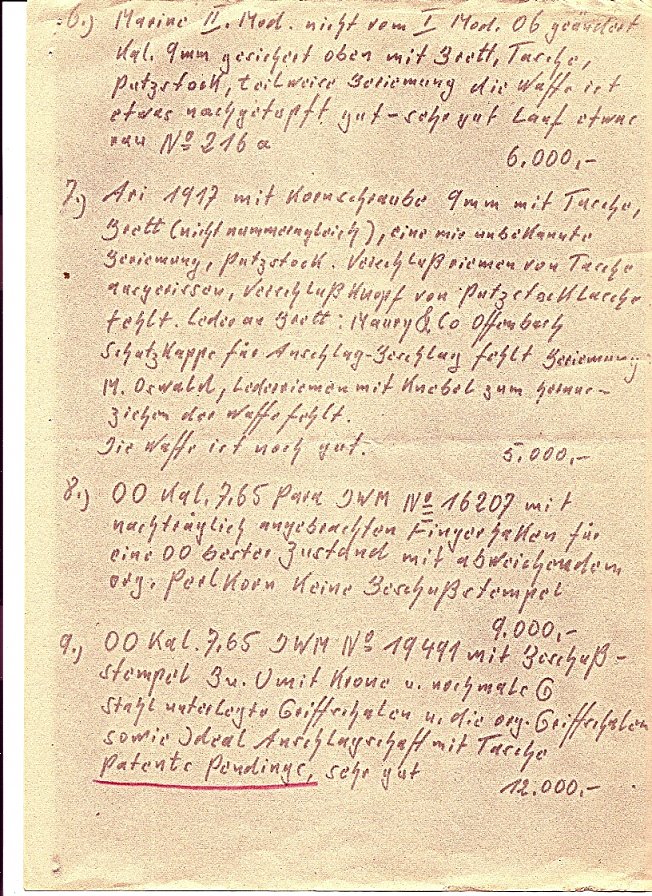 6.) Marine II. Mod. nicht vom I Mod. 06 geändert
Kal. 9mm gesichert oben mit Brett, Tasche,
Putzstock, teilweise Beriemung die Waffe ist
etwas nachgetupft gut-sehr gut Lauf etwas
rau No 216a
6.000,-
7.) Ari 1917 mit Kornschraube 9mm mit Tasche,
Brett (nicht nummerngleich), eine mir unbekannte
Beriemung, Putzstock. Verschlußriemen von Tasche
ausgerissen, Verschluß Knopf von Putzstocklasche
fehlt. Leder an Brett: Maury & Co Offenbach
Schutzkappe für Anschlag-Beschlag fehlt Beriemung
M. Oswald, Lederriemen mit Knebel zum heraus-
ziehen der Waffe fehlt.
Die Waffe ist noch gut.
5.000,-
8.) 00 Kal. 7,65 Para DWM No 16207 mit
nachträglich angebrachten Fingerhaken für
eine 00 bester Zustand mit abweichendem
org. Perlkorn Keine Beschußstempel
9.000,-
9.) 00 Kal. 7,65 DWM No 19491 mit Beschuß-
stempel B u. U mit Krone u. nochmals G
Stahl unterlegte Griffschalen u. die org. Griffschalen
sowie Ideal Anschlagschaft mit Tasche
Patents Pendings, sehr gut
12.000,-